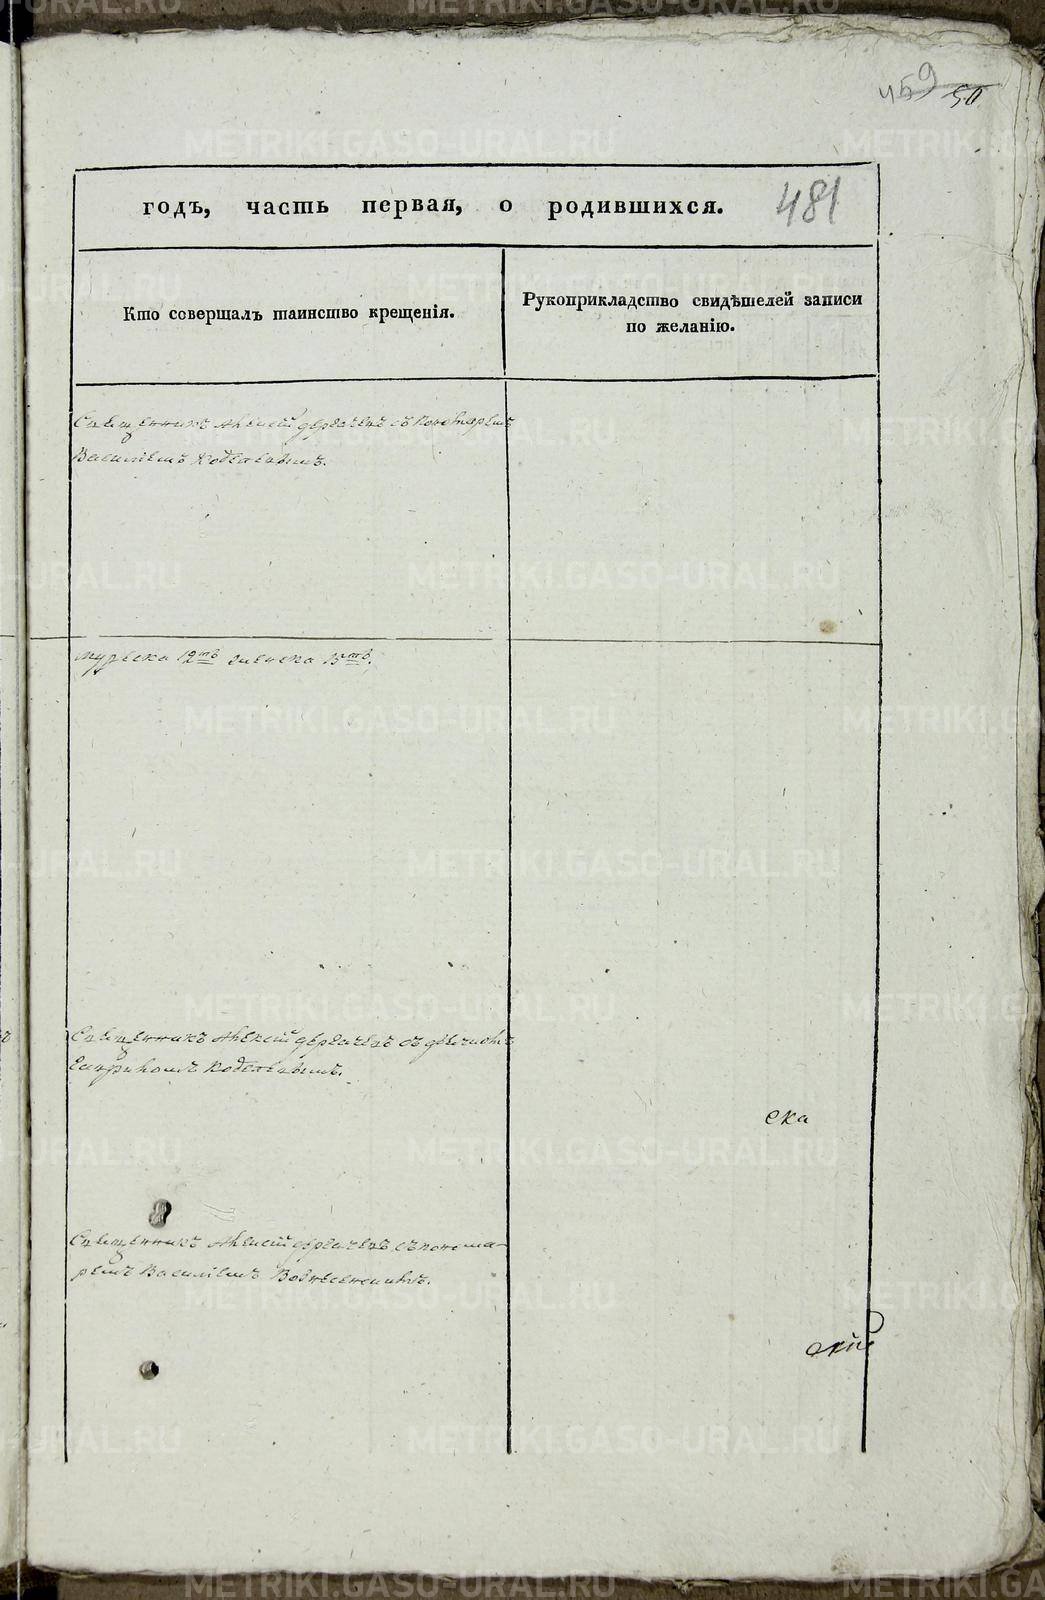 459 50
годъ, часть первая, о родившихся. 481
Кто совершалъ таинство крещенія.
Рукоприкладство свидѣтелей записи
по желанію.
Священникъ Алексій Дергачевъ съ пономаремъ
Василіемъ
мужеска 12ть женска 15ть.
Священникъ Алексій Дергачевъ съ дьячкомъ
ска
Священникъ Алексій Дергачевъ съ понома-
ремъ Василіемъ Вознесенскимъ.
скій
METRIKI.GASO-URAL.RU